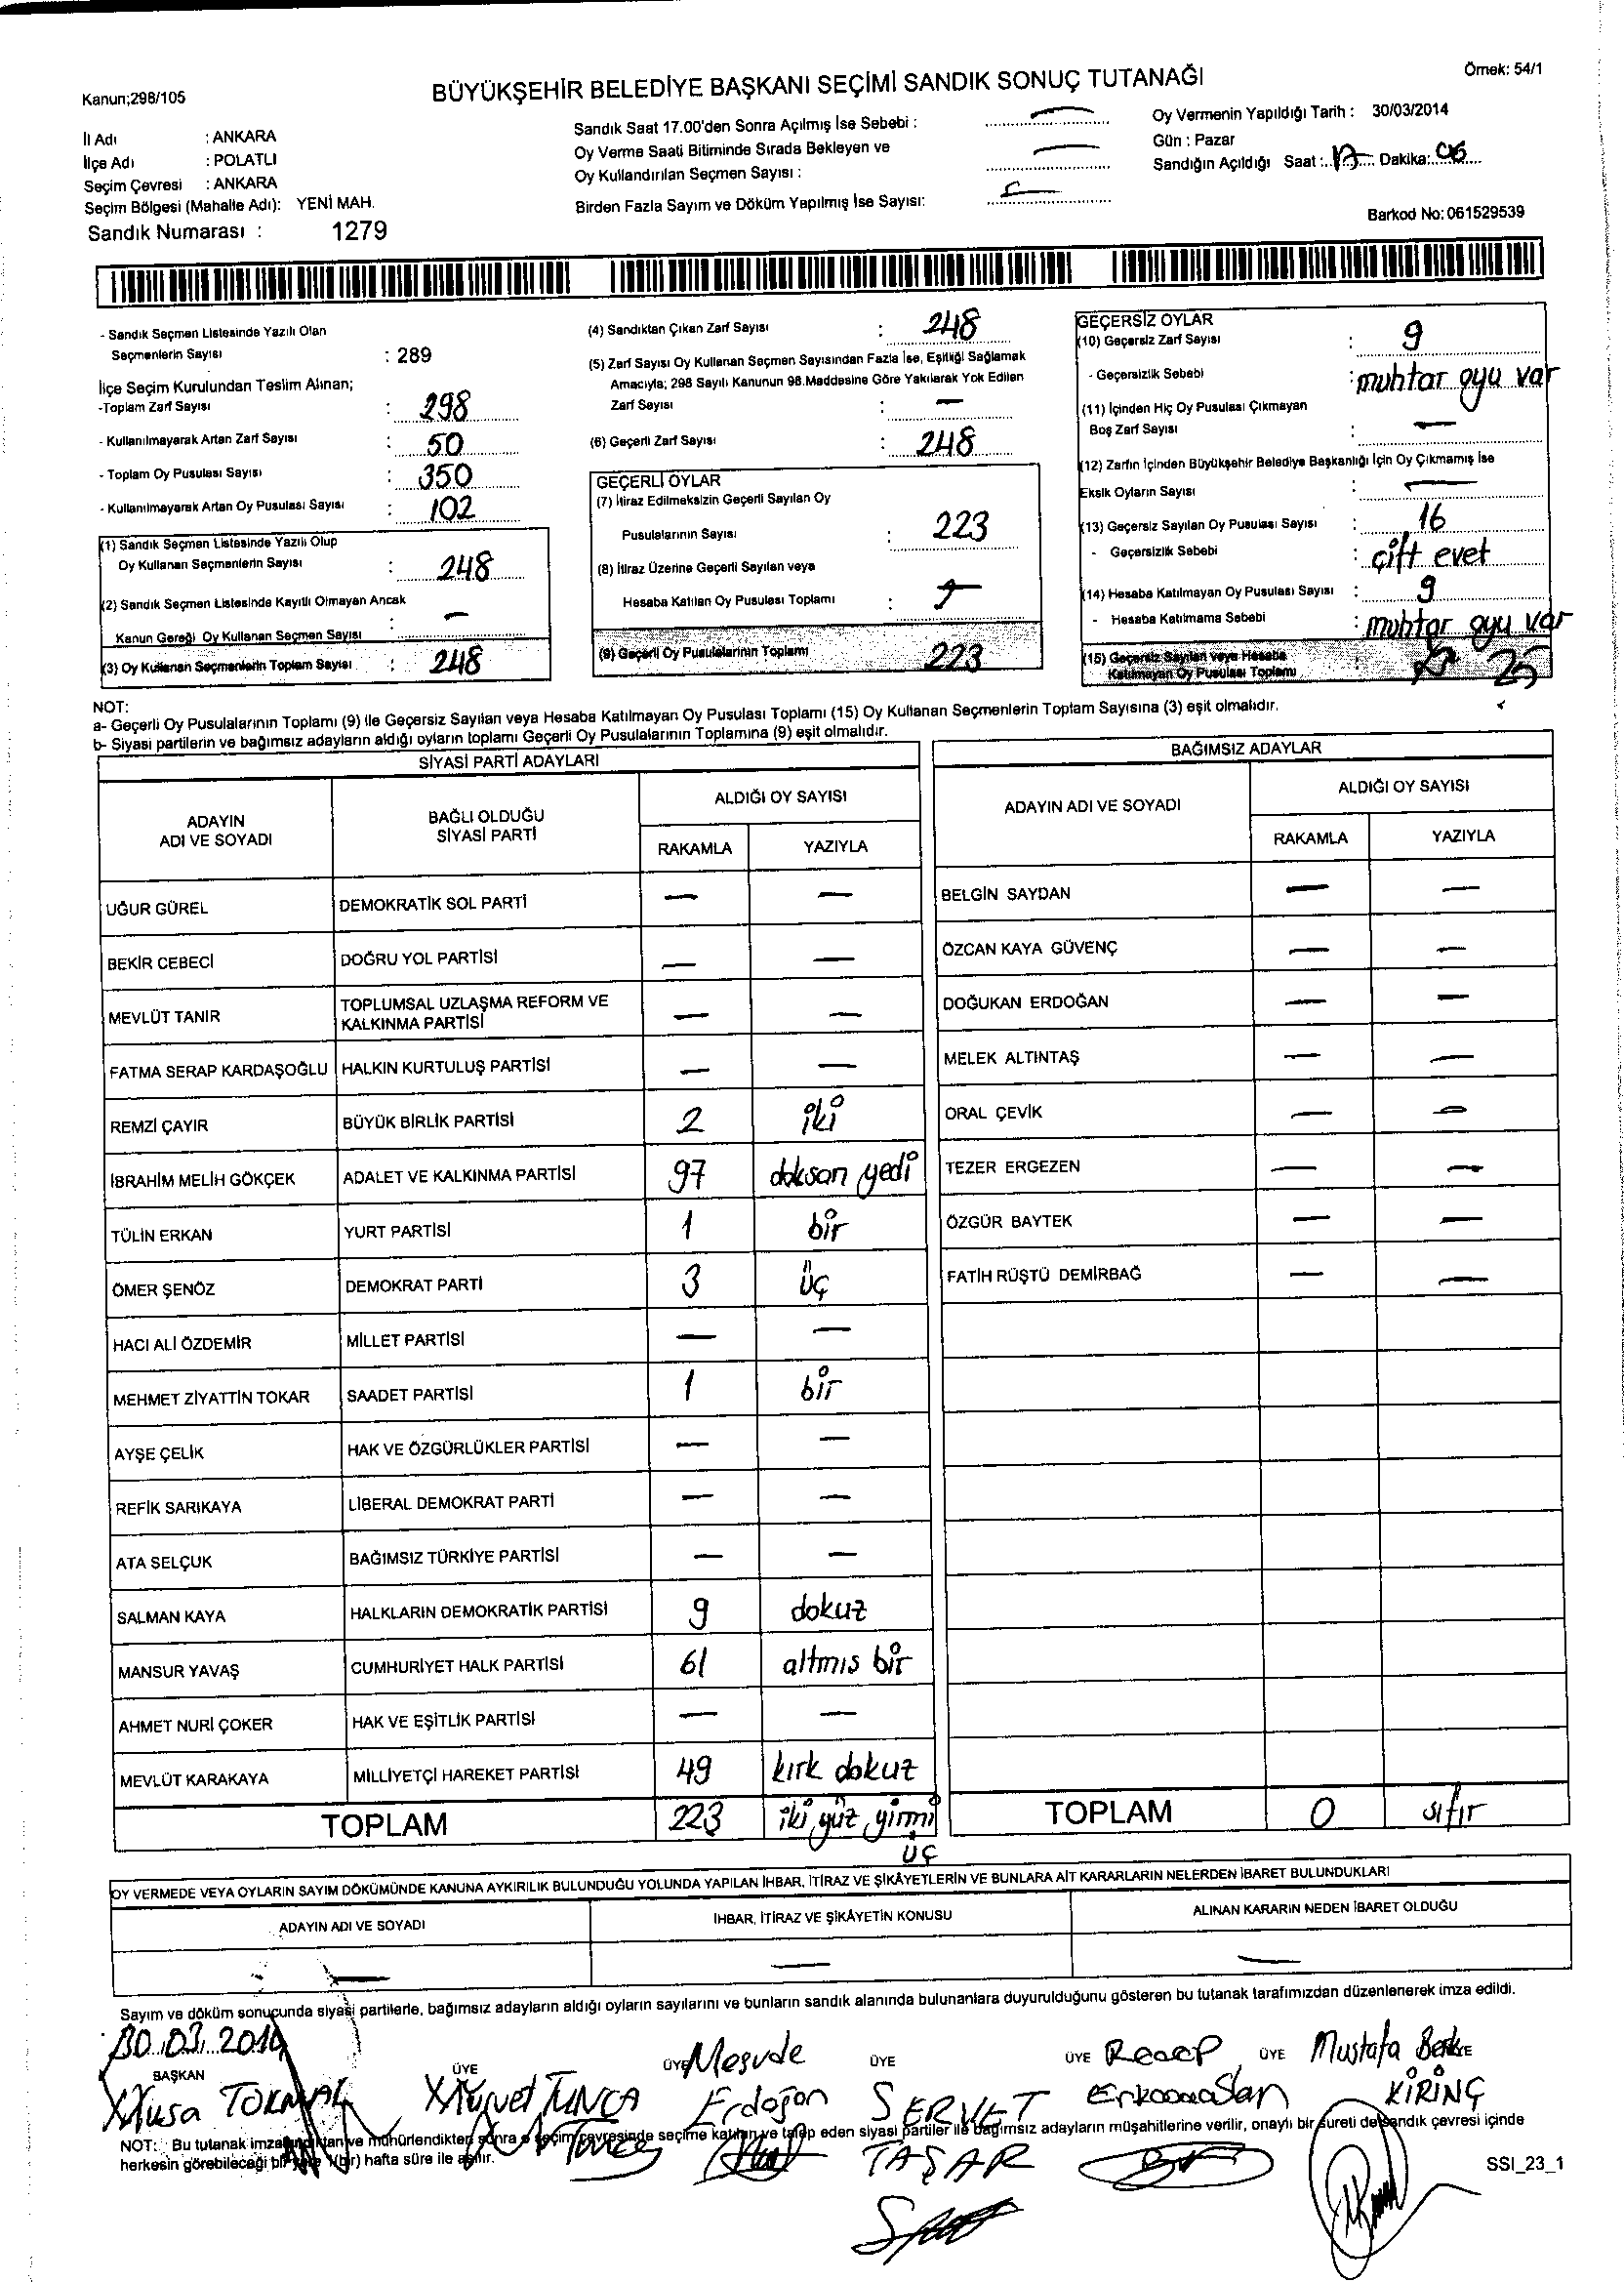 Kanun;298/105
BÜYÜKŞEHİR BELEDİYE BAŞKANI SEÇİMİ SANDIK SONUÇ TUTANAĞI
Örnek: 54/1
İl Adı : ANKARA
İlçe Adı : POLATLI
Seçim Çevresi : ANKARA
Seçim Bölgesi (Mahalle Adı): YENİ MAH.
Sandık Numarası : 1279
Sandık Saat 17.00'den Sonra Açılmış İse Sebebi : —
Oy Verme Saati Bitiminde Sırada Bekleyen ve
Oy Kullandırılan Seçmen Sayısı : —
Birden Fazla Sayım ve Döküm Yapılmış İse Sayısı:
Oy Vermenin Yapıldığı Tarih : 30/03/2014
Gün : Pazar
Sandığın Açıldığı Saat : 17 Dakika: 06
Barkod No: 061529539
- Sandık Seçmen Listesinde Yazılı Olan
Seçmenlerin Sayısı : 289
İlçe Seçim Kurulundan Teslim Alınan;
-Toplam Zarf Sayısı : 298
- Kullanılmayarak Artan Zarf Sayısı : 50
- Toplam Oy Pusulası Sayısı : 350
- Kullanılmayarak Artan Oy Pusulası Sayısı : 102
(1) Sandık Seçmen Listesinde Yazılı Olup
Oy Kullanan Seçmenlerin Sayısı : 248
(2) Sandık Seçmen Listesinde Kayıtlı Olmayan Ancak
Kanun Gereği Oy Kullanan Seçmen Sayısı : —
(3) Oy Kullanan Seçmenlerin Toplam Sayısı : 248
(4) Sandıktan Çıkan Zarf Sayısı : 248
(5) Zarf Sayısı Oy Kullanan Seçmen Sayısından Fazla İse, Eşitliği Sağlamak
Amacıyla; 298 Sayılı Kanunun 98.Maddesine Göre Yakılarak Yok Edilen
Zarf Sayısı : —
(6) Geçerli Zarf Sayısı : 248
GEÇERLİ OYLAR
(7) İtiraz Edilmeksizin Geçerli Sayılan Oy
Pusulalarının Sayısı : 223
(8) İtiraz Üzerine Geçerli Sayılan veya
Hesaba Katılan Oy Pusulası Toplamı :
(9) Geçerli Oy Pusulalarının Toplamı 223
GEÇERSİZ OYLAR
(10) Geçersiz Zarf Sayısı : 9
- Geçersizlik Sebebi : muhtar oyu var
(11) İçinden Hiç Oy Pusulası Çıkmayan
Boş Zarf Sayısı : —
(12) Zarfın İçinden Büyükşehir Belediye Başkanlığı İçin Oy Çıkmamış İse
Eksik Oyların Sayısı : —
(13) Geçersiz Sayılan Oy Pusulası Sayısı : 16
- Geçersizlik Sebebi : çift evet
(14) Hesaba Katılmayan Oy Pusulası Sayısı : 9
- Hesaba Katılmama Sebebi : muhtar oyu var
(15) Geçersiz Sayılan veya Hesaba
Katılmayan Oy Pusulası Toplamı : 25
NOT:
a- Geçerli Oy Pusulalarının Toplamı (9) ile Geçersiz Sayılan veya Hesaba Katılmayan Oy Pusulası Toplamı (15) Oy Kullanan Seçmenlerin Toplam Sayısına (3) eşit olmalıdır.
b- Siyasi partilerin ve bağımsız adayların aldığı oyların toplamı Geçerli Oy Pusulalarının Toplamına (9) eşit olmalıdır.
SİYASİ PARTİ ADAYLARI
ADAYIN ADI VE SOYADI
BAĞLI OLDUĞU SİYASİ PARTİ
ALDIĞI OY SAYISI
RAKAMLA YAZIYLA
UĞUR GÜREL DEMOKRATİK SOL PARTİ — —
BEKİR CEBECİ DOĞRU YOL PARTİSİ — —
MEVLÜT TANIR TOPLUMSAL UZLAŞMA REFORM VE KALKINMA PARTİSİ — —
FATMA SERAP KARDAŞOĞLU HALKIN KURTULUŞ PARTİSİ — —
REMZİ ÇAYIR BÜYÜK BİRLİK PARTİSİ 2 iki
İBRAHİM MELİH GÖKÇEK ADALET VE KALKINMA PARTİSİ 97 doksan yedi
TÜLİN ERKAN YURT PARTİSİ 1 bir
ÖMER ŞENÖZ DEMOKRAT PARTİ 3 üç
HACI ALİ ÖZDEMİR MİLLET PARTİSİ — —
MEHMET ZİYATTİN TOKAR SAADET PARTİSİ 1 bir
AYŞE ÇELİK HAK VE ÖZGÜRLÜKLER PARTİSİ — —
REFİK SARIKAYA LİBERAL DEMOKRAT PARTİ — —
ATA SELÇUK BAĞIMSIZ TÜRKİYE PARTİSİ — —
SALMAN KAYA HALKLARIN DEMOKRATİK PARTİSİ 9 dokuz
MANSUR YAVAŞ CUMHURİYET HALK PARTİSİ 61 altmıs bir
AHMET NURİ ÇOKER HAK VE EŞİTLİK PARTİSİ — —
MEVLÜT KARAKAYA MİLLİYETÇİ HAREKET PARTİSİ 49 kırk dokuz
TOPLAM 223 iki yüz yirmi üç
BAĞIMSIZ ADAYLAR
ADAYIN ADI VE SOYADI
ALDIĞI OY SAYISI
RAKAMLA YAZIYLA
BELGİN SAYDAN — —
ÖZCAN KAYA GÜVENÇ — —
DOĞUKAN ERDOĞAN — —
MELEK ALTINTAŞ — —
ORAL ÇEVİK — —
TEZER ERGEZEN — —
ÖZGÜR BAYTEK — —
FATİH RÜŞTÜ DEMİRBAĞ — —
TOPLAM 0 sıfır
OY VERMEDE VEYA OYLARIN SAYIM DÖKÜMÜNDE KANUNA AYKIRILIK BULUNDUĞU YOLUNDA YAPILAN İHBAR, İTİRAZ VE ŞİKÂYETLERİN VE BUNLARA AİT KARARLARIN NELERDEN İBARET BULUNDUKLARI
ADAYIN ADI VE SOYADI İHBAR, İTİRAZ VE ŞİKÂYETİN KONUSU ALINAN KARARIN NEDEN İBARET OLDUĞU
— — —
Sayım ve döküm sonucunda siyasi partilerle, bağımsız adayların aldığı oyların sayılarını ve bunların sandık alanında bulunanlara duyurulduğunu gösteren bu tutanak tarafımızdan düzenlenerek imza edildi.
30.03.2014
BAŞKAN ÜYE ÜYE ÜYE ÜYE ÜYE
Musa
TUNCA
Mesude Erdoğan
SERVET TAŞAR
Recep
Mustafa
KİRİNÇ
NOT: Bu tutanak imzalandıktan ve mühürlendikten sonra o seçim çevresinde seçime katılan ve talep eden siyasi partiler ile bağımsız adayların müşahitlerine verilir, onaylı bir sureti de sandık çevresi içinde
herkesin görebileceği bir yere 1(bir) hafta süre ile asılır.
SSI_23_1